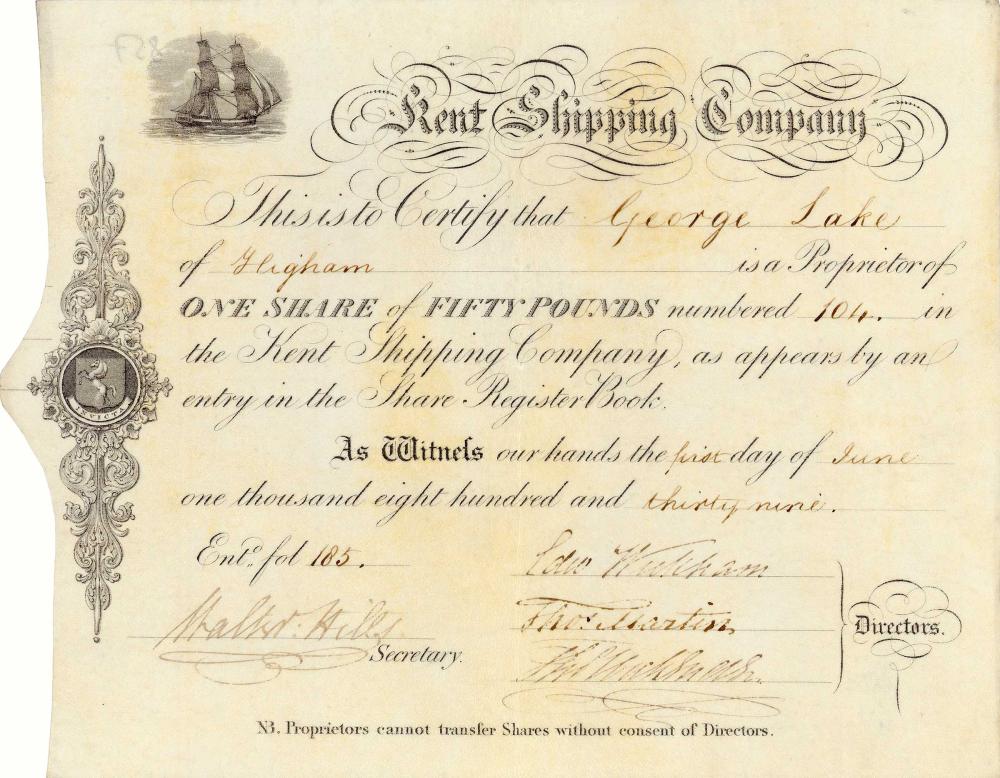 F38
Kent Shipping Company
This is to Certify that George Lake
of Higham is a Proprietor of
ONE SHARE of FIFTY POUNDS numbered 104. in
the Kent Shipping Company, as appears by an
entry in the Share Register Book.
INVICTA
As Witneſs our hands the first day of June
one thousand eight hundred and thirty nine.
Entd. fol 185.
Edw
Walter Hills
Thos. Martin
Directors.
Secretary.
NB. Proprietors cannot transfer Shares without consent of Directors.